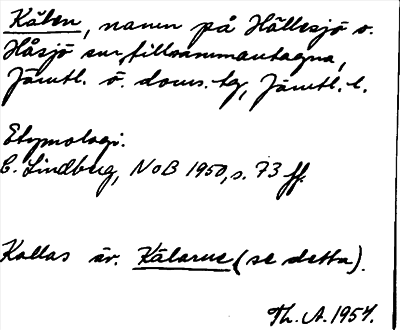 Kälen, namn på Hällesjö o.
Håsjö snr, tillsammantagna,
Jämtl. ö. doms. tg, Jämtl. l.
Etymologi:
C. Lindberg, NoB 1950, s. 73 ff.
Kallas äv. Kälarne (se detta).
Th. A. 1957.